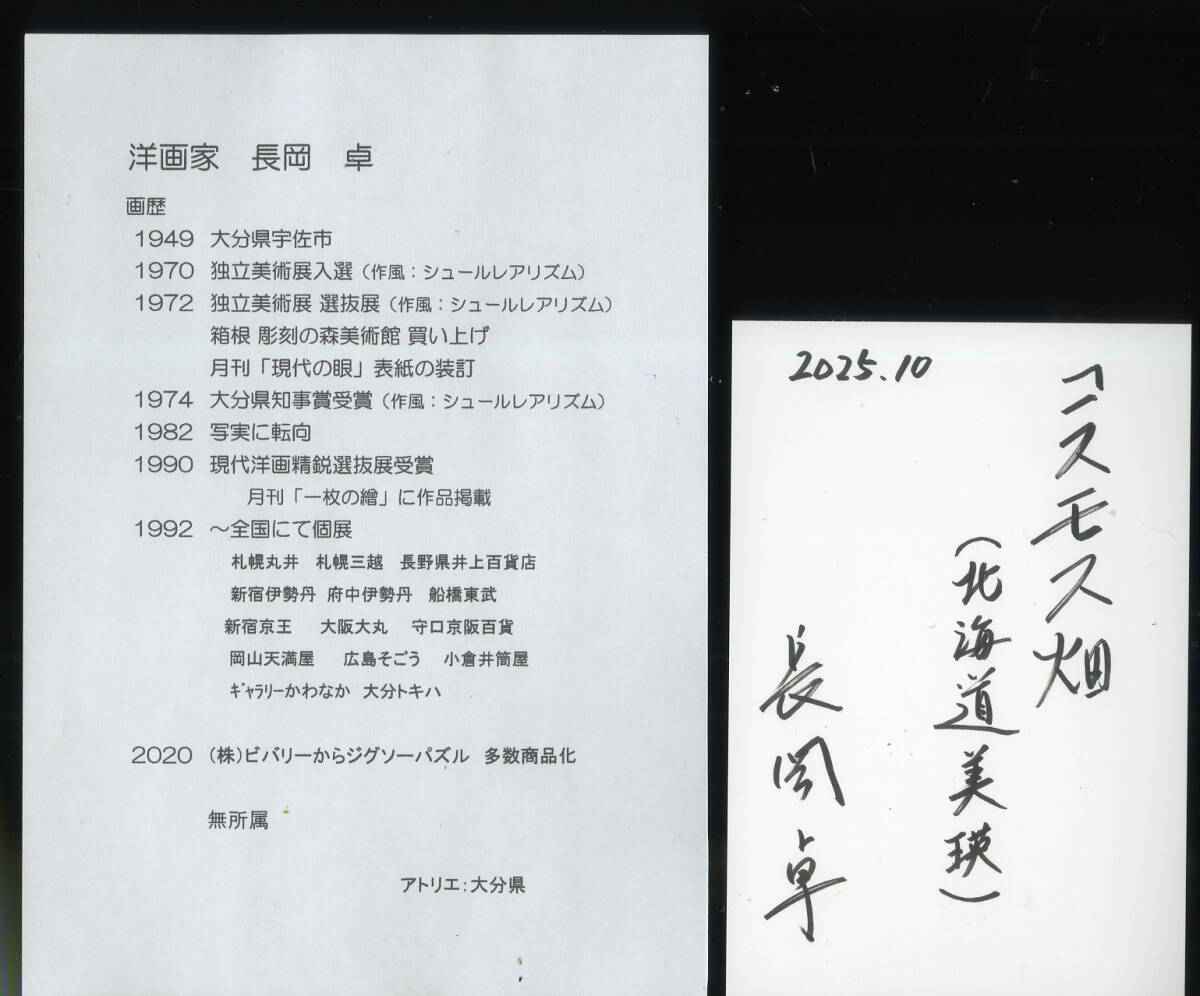 洋画家 長岡 卓
画歴
1949 大分県宇佐市
1970 独立美術展入選（作風：シュールレアリズム）
1972 独立美術展 選抜展（作風：シュールレアリズム）
箱根 彫刻の森美術館 買い上げ
月刊「現代の眼」表紙の装訂
1974 大分県知事賞受賞（作風：シュールレアリズム）
1982 写実に転向
1990 現代洋画精鋭選抜展受賞
月刊「一枚の繪」に作品掲載
1992 ～全国にて個展
札幌丸井 札幌三越 長野県井上百貨店
新宿伊勢丹 府中伊勢丹 船橋東武
新宿京王 大阪大丸 守口京阪百貨
岡山天満屋 広島そごう 小倉井筒屋
ｷﾞｬﾗﾘｰかわなか 大分トキハ
2020 (株)ビバリーからジグソーパズル 多数商品化
無所属
アトリエ：大分県
2025.10
コスモス畑
(北海道美瑛)
長岡卓